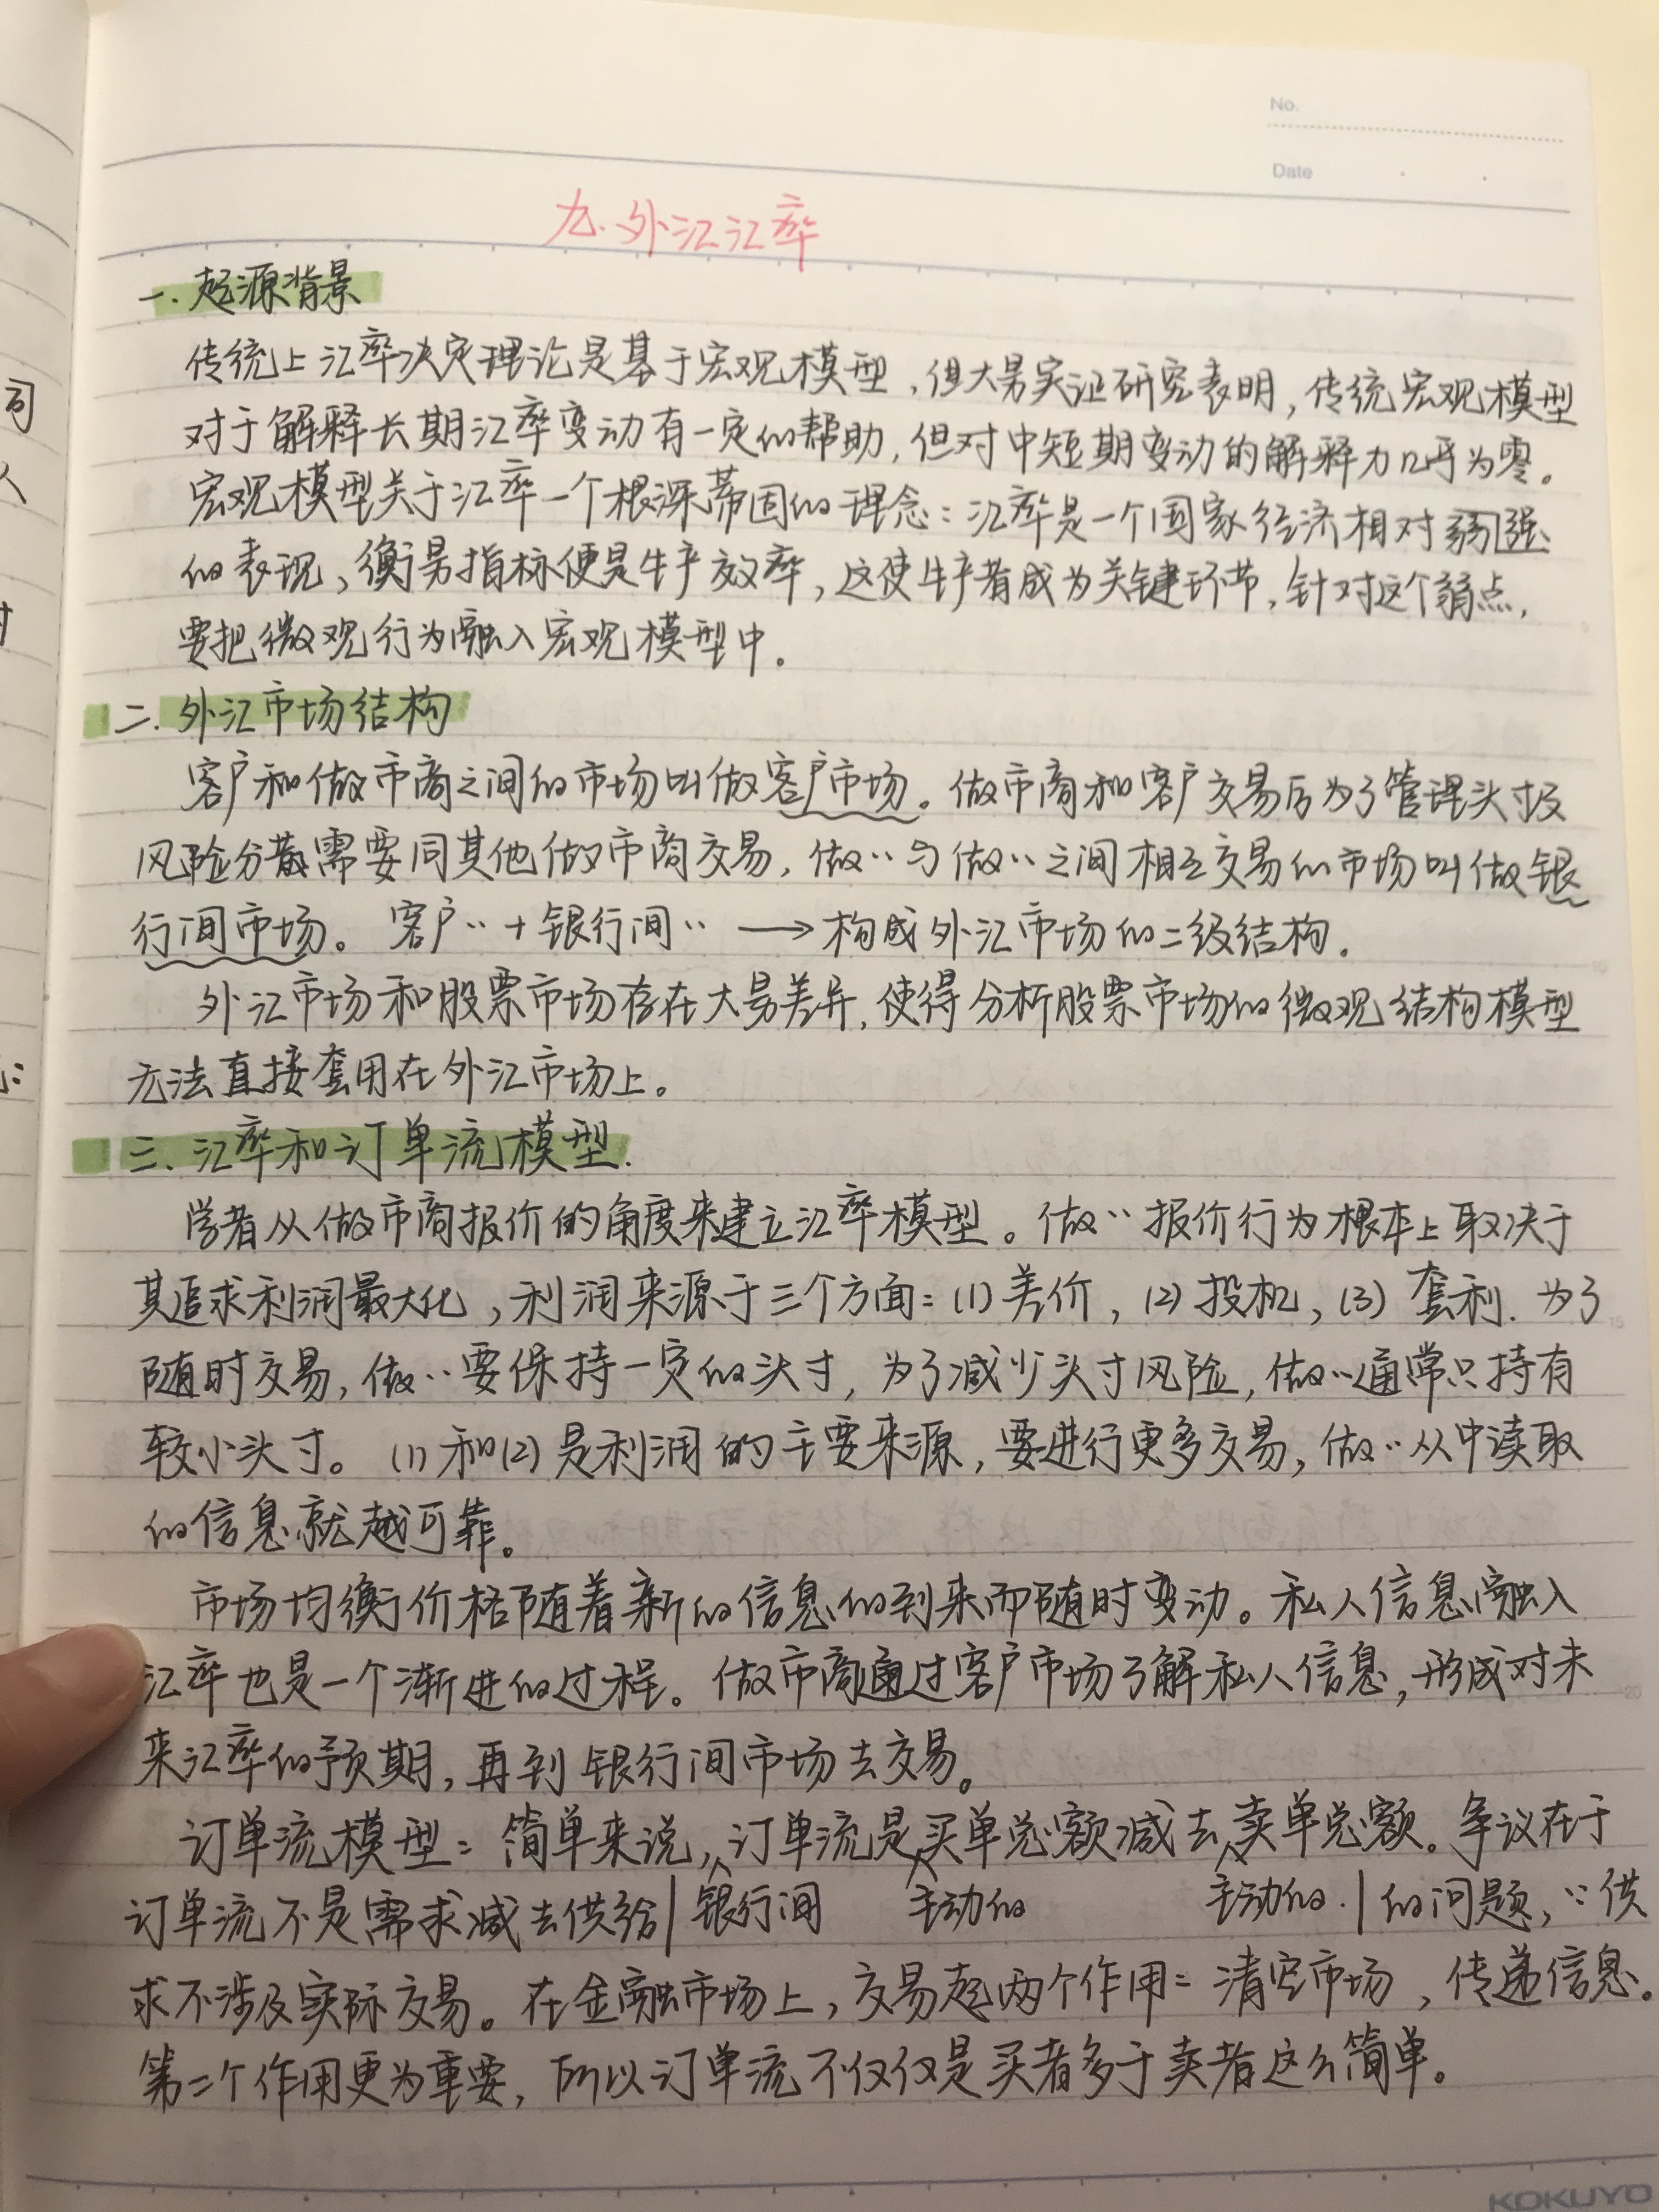 No.
Date
九.外汇汇率
一.起源背景
传统上汇率决定理论是基于宏观模型,但大量实证研究表明,传统宏观模型
对于解释长期汇率变动有一定的帮助,但对中短期变动的解释力几乎为零。
宏观模型关于汇率一个根深蒂固的理念:汇率是一个国家经济相对弱强
的表现,衡量指标便是生产效率,这使生产者成为关键环节,针对这个弱点,
要把微观行为融入宏观模型中。
二.外汇市场结构
客户和做市商之间的市场叫做客户市场。做市商和客户交易后为了管理头寸及
风险分散需要同其他做市商交易,做〃与做〃之间相互交易的市场叫做银
行间市场。客户〃+银行间〃→构成外汇市场的二级结构.
外汇市场和股票市场存在大量差异,使得分析股票市场的微观结构模型
无法直接套用在外汇市场上。
三.汇率和订单流模型.
学者从做市商报价的角度来建立汇率模型。做〃报价行为根本上取决于
其追求利润最大化,利润来源于三个方面:(1)差价,(2)投机,(3)套利.为了
随时交易,做〃要保持一定的头寸,为了减少头寸风险,做〃通常只持有
较小头寸。(1)和(2)是利润的主要来源,要进行更多交易,做〃从中读取
的信息就越可靠。
市场均衡价格随着新的信息的到来而随时变动。私人信息融入
汇率也是一个渐进的过程。做市商通过客户市场了解私人信息,形成对未
来汇率的预期,再到银行间市场去交易。
订单流模型:简单来说,订单流是买单总额减去卖单总额。争议在于
订单流不是需求减去供给|银行间 主动的 主动的.|的问题,∵供
求不涉及实际交易。在金融市场上,交易起两个作用:清空市场,传递信息。
第二个作用更为重要,所以订单流不仅仅是买者多于卖者这么简单。
KOKUYO